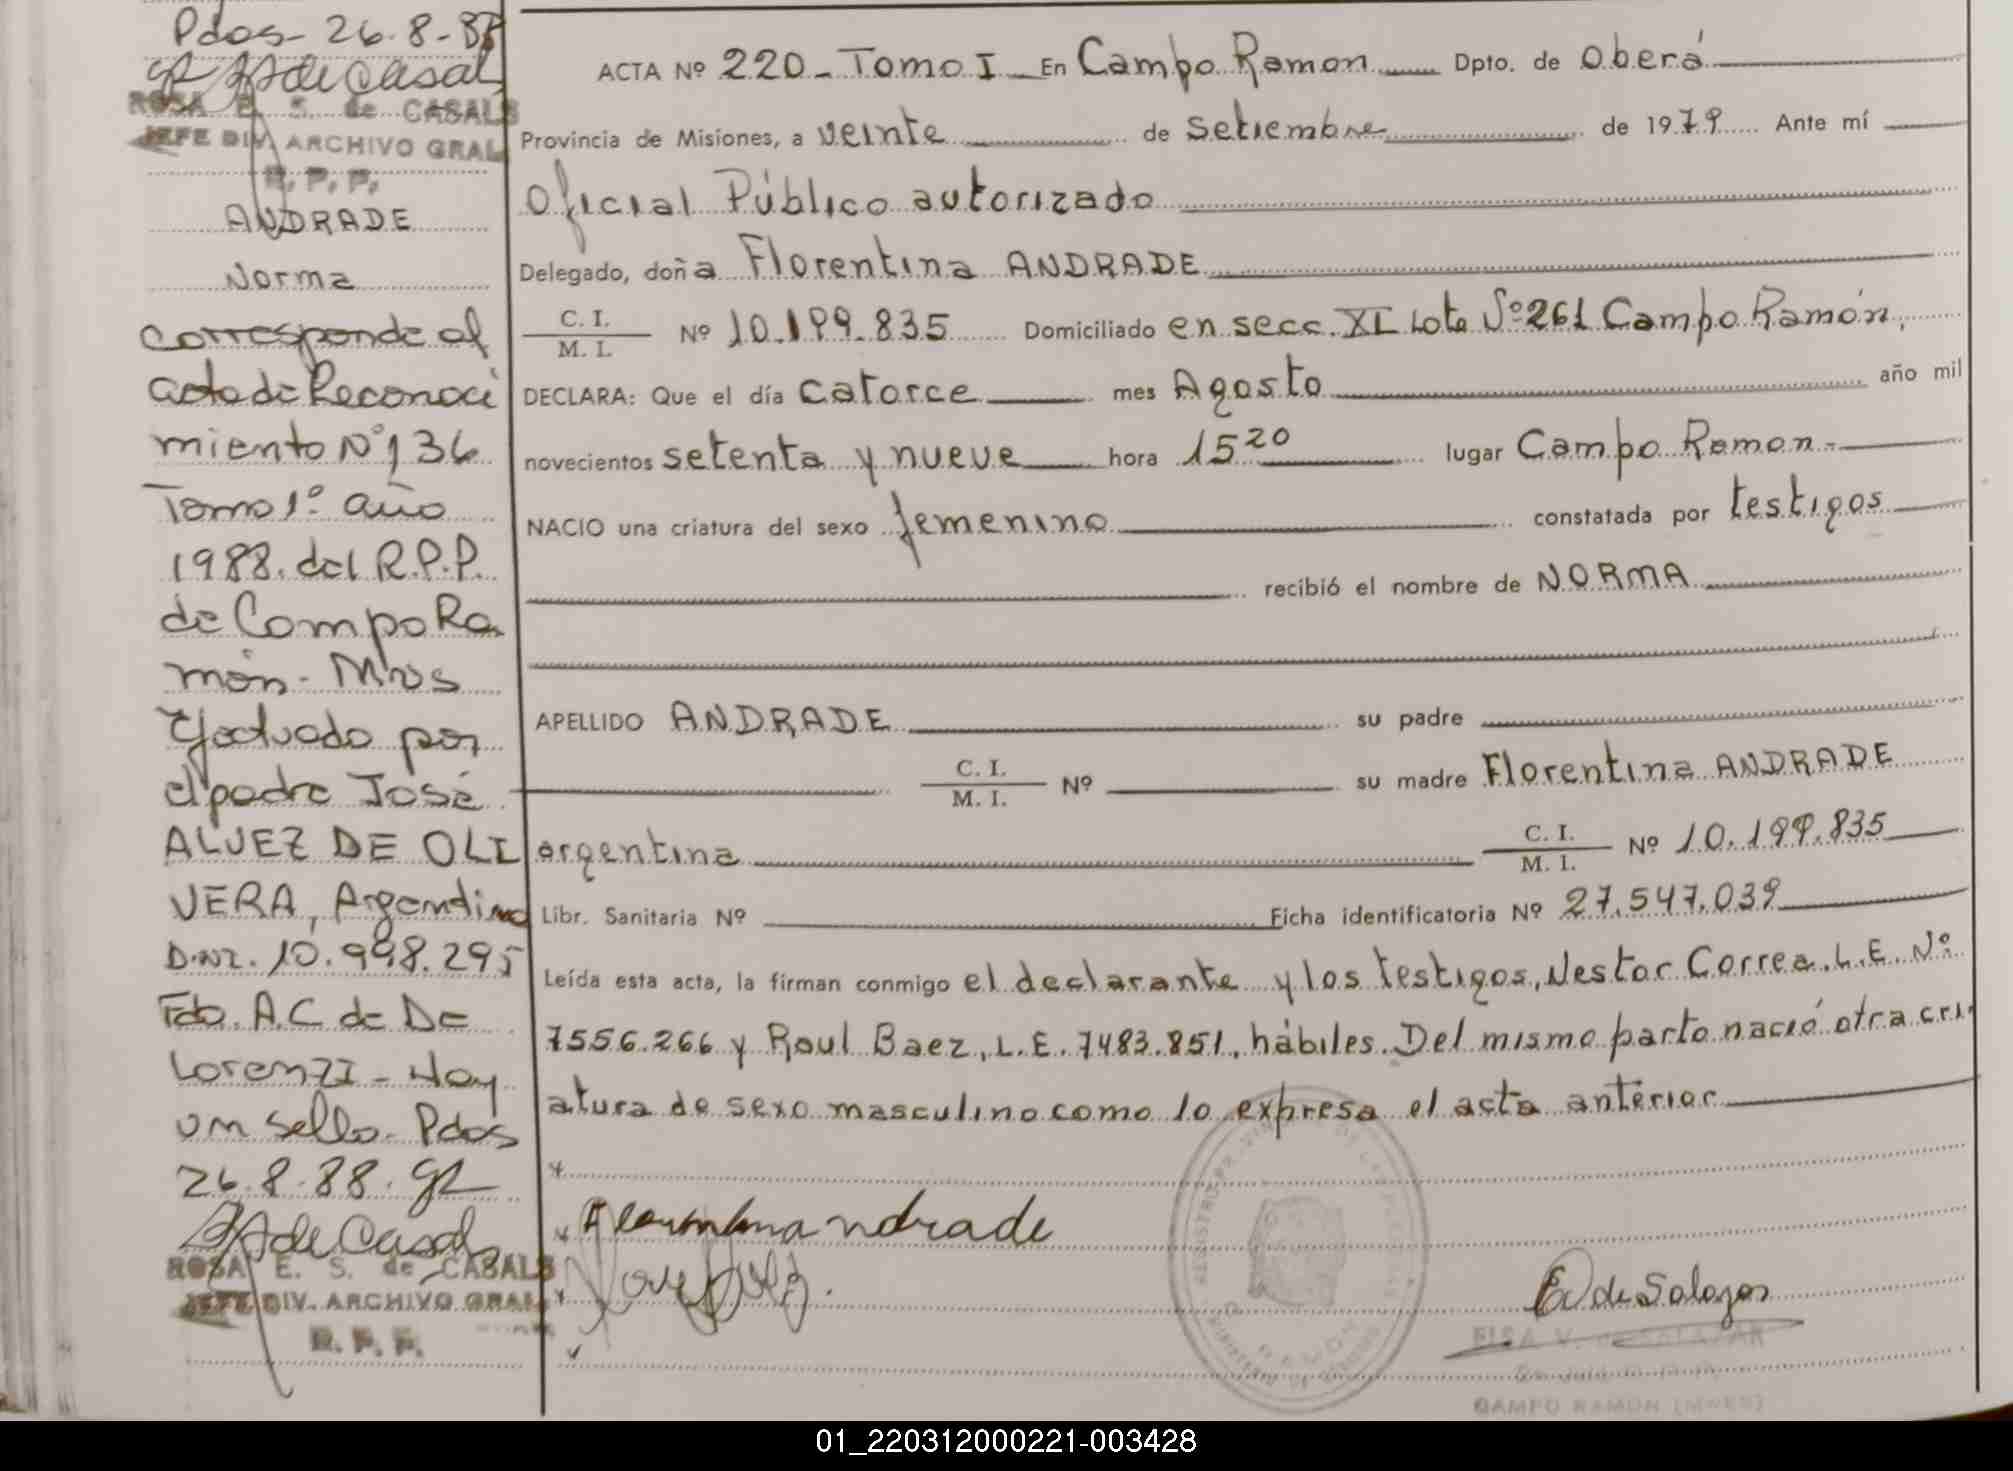 Pdos- 26-8-88
ROSA E. S. de CASALS
JEFE DIV. ARCHIVO GRAL
R. P. P.
ANDRADE
Norma
Corresponde al
acta de Reconoci
miento Nº 136
Tomo 1º año
1988. del R.P.P.
de Campo Ra
món- Mnes
Efectuado por
el padre José
ALVEZ DE OLI
VERA, Argentino
D.N.I. 10.998.295
Fdo. A.C de De
Lorenzi - Hay
un sello- Pdos
26-8-88.
ROSA E. S. de CASALS
JEFE DIV. ARCHIVO GRAL
R. P. P.
ACTA Nº 220 - Tomo I - En Campo Ramon Dpto. de Oberá
Provincia de Misiones, a veinte de Setiembre de 1979 Ante mí
Oficial Público autorizado
Delegado, doña Florentina ANDRADE
C. I.
M. I. Nº 10.199.835 Domiciliado en secc. XI Lote Nº 261 Campo Ramón,
DECLARA: Que el día catorce mes Agosto año mil
novecientos setenta y nueve hora 15 20 lugar Campo Ramon -
NACIO una criatura del sexo femenino constatada por testigos
recibió el nombre de NORMA
APELLIDO ANDRADE su padre
C. I.
M. I. Nº su madre Florentina ANDRADE
argentina C. I.
M. I. Nº 10.199.835
Libr. Sanitaria Nº Ficha identificatoria Nº 27.547.039
Leída esta acta, la firman conmigo el declarante y los testigos, Nestor Correa. L.E. Nº
7556.266 y Raul Baez, L.E. 7483.851, hábiles. Del mismo parto nació otra cri
atura de sexo masculino como lo expresa el acta anterior
ELSA V. de SALAZAR
CAMPO RAMON (Mnes)
01_220312000221-003428